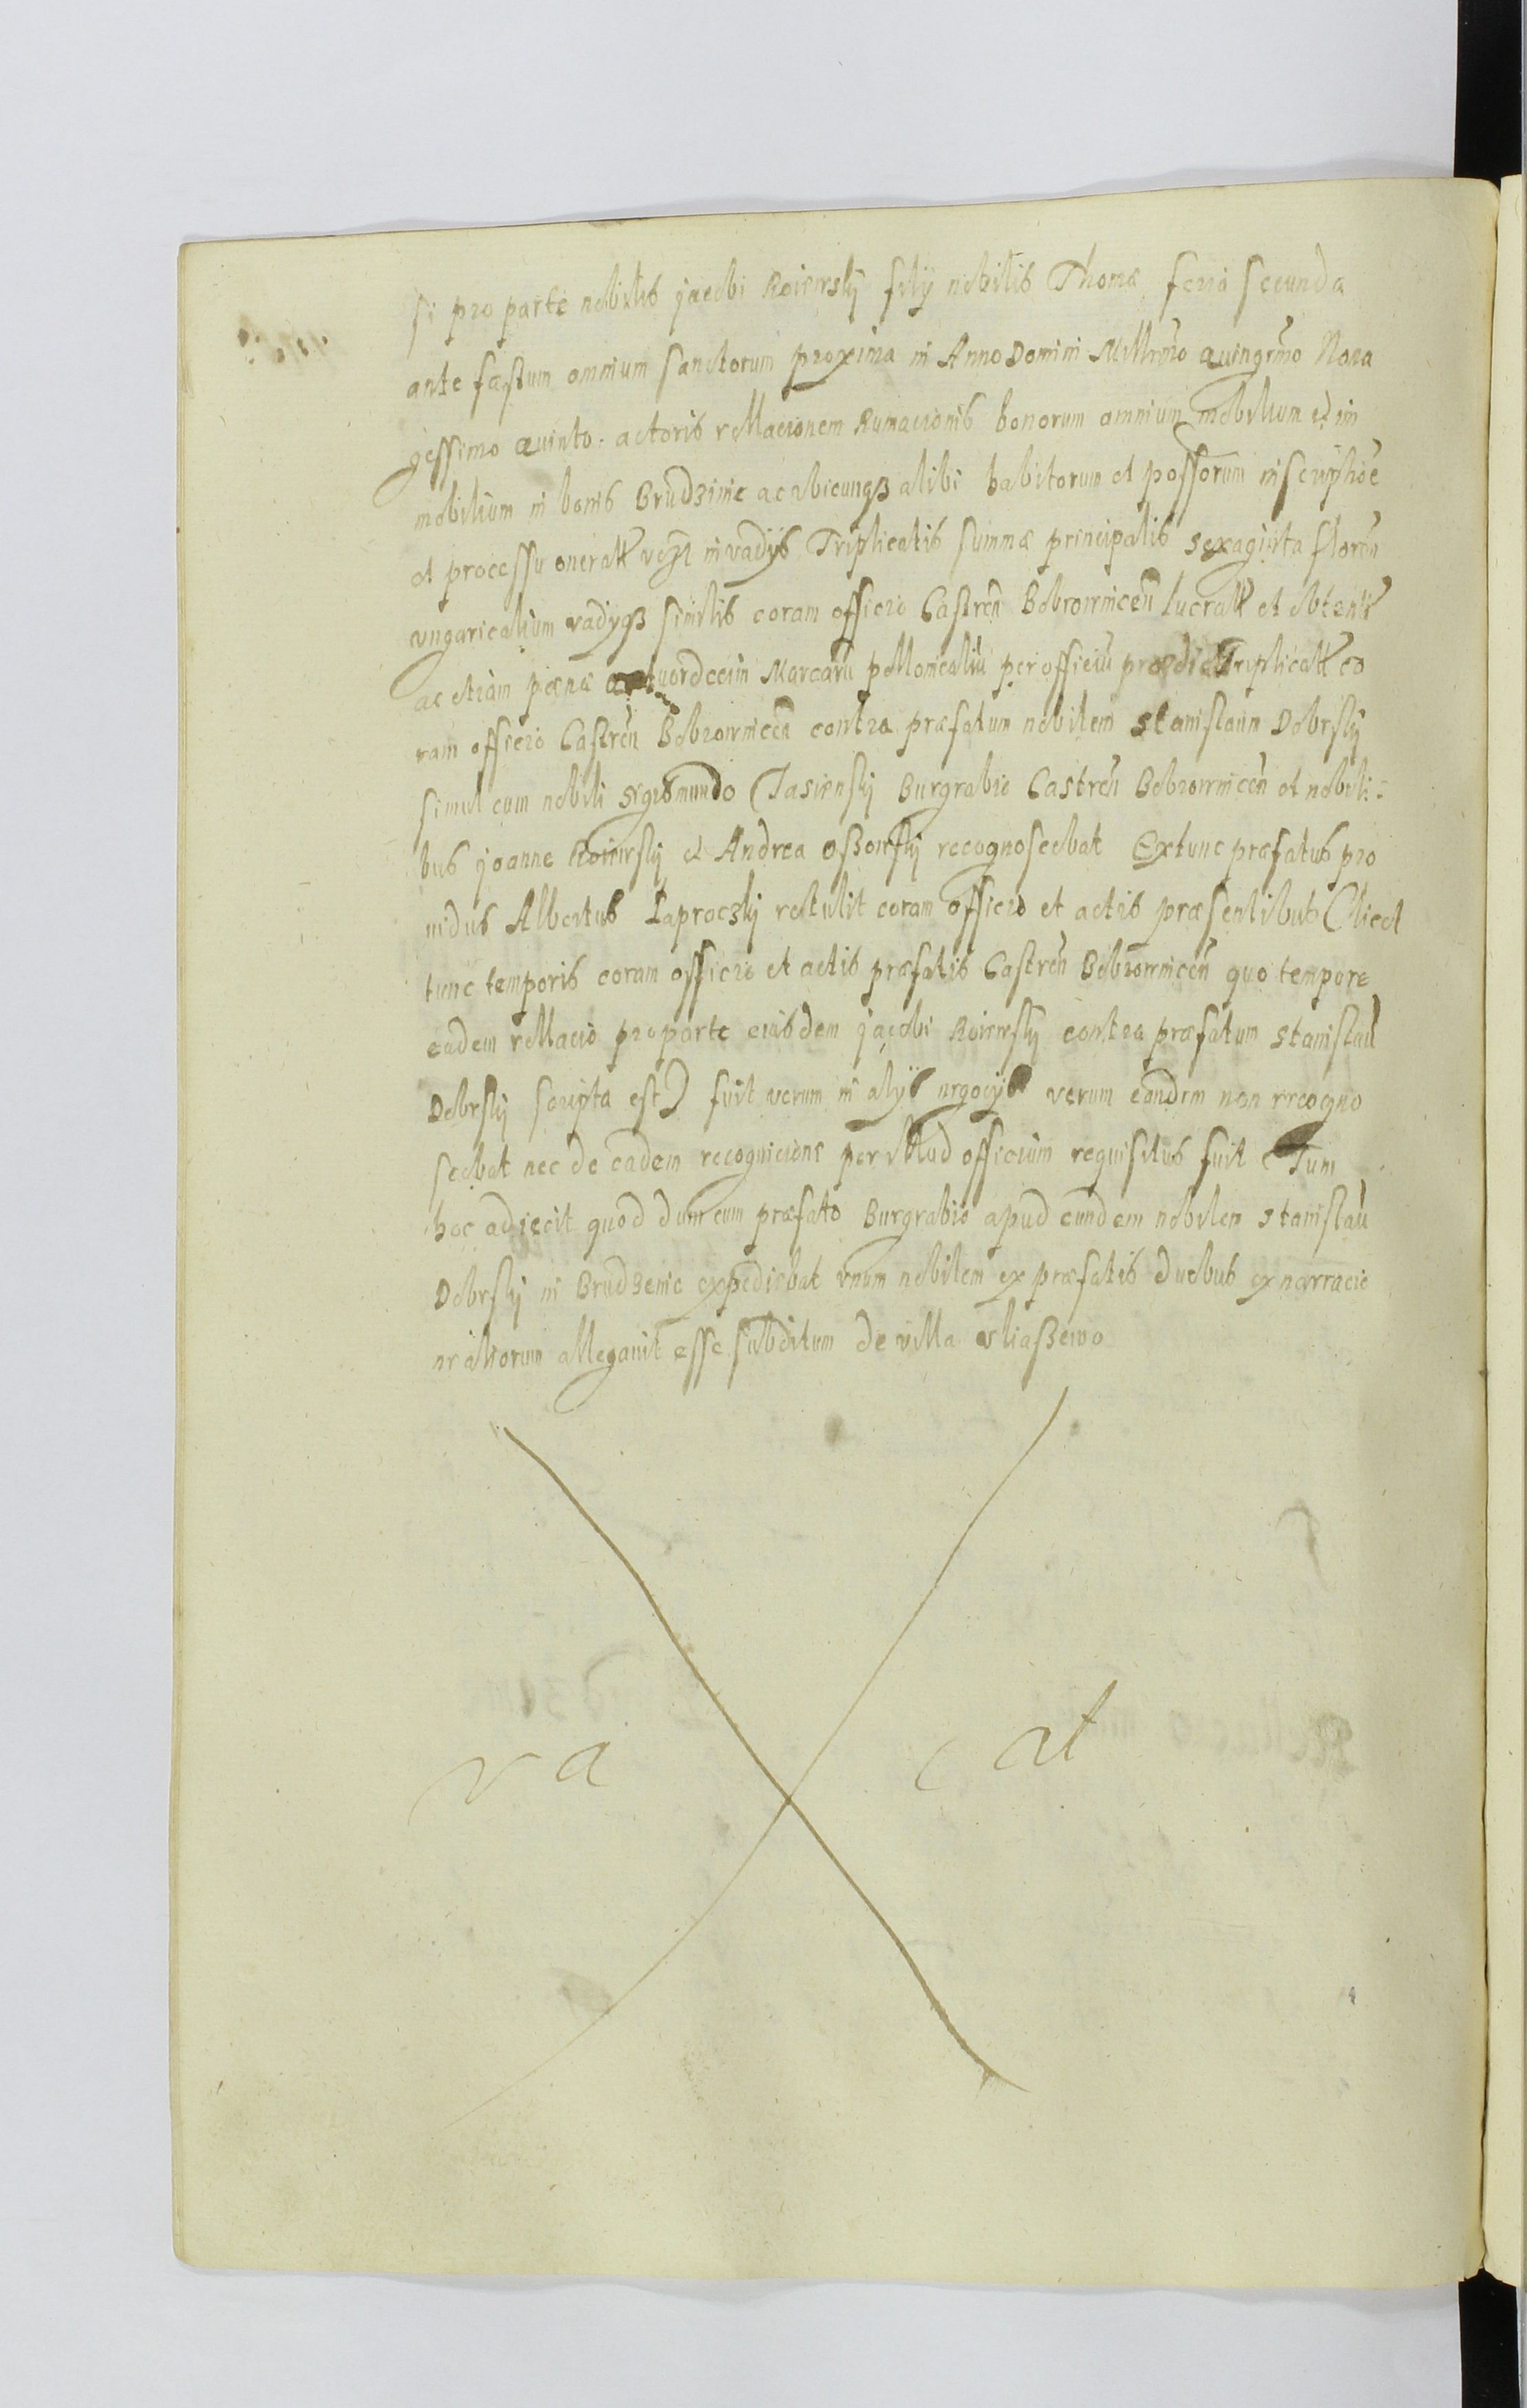 si pro parte nobilis jacobi Roiewsky filij nobilis Thomæ feria secunda
ante fæstum omnium sanctorum proxima in Anno Domini Millimo quingmo Nona
gessimo quinto. actoris rellacionem Rumacionis bonorum omnium mobilium et im
mobilium in bonis Brudzinie ac ubicunqß alibi habitorum et possorum inscriphoe
et processu onerall in vadijs Triplicatis summæ principalis sexaginta floren
vngaricalium vadyqß similis coram officio Castren Bobrownicen lucrall et obtent
ac etiam pœnæ quatuordecim Marcaru pollonicaliu per officiu prædict Triplicall co
ram officio Castren Bobrownicen contra præfatum nobilem Stanislaum Dobrsky
simul cum nobili Sigismundo Jasiensky Burgrabio Castren Bobrownicen et nobili:
bus joanne Roiewsky et Andrea Oßowsky recognoscebat Extunc præfatus pro
uidus Albertus Laproczky retulit coram officio et actis præsentibus (licet
tunc temporis coram officio et actis præfatis Castren Bobrownicen quo tempore
eadem rellacio pro parte eiusdem jacobi Roiewsky contra præfatum Stanislau
Dobrsky scripta est) fuit verum in alijs negocijs verum eandem non recogno
scebat nec de eadem recognicione per illud officium requisitus fuit Tum
hoc adiecit quod dum cum præfato Burgrabio apud eundem nobilem Stanislau
Dobrsky in Brudzenie expediebat vnum nobilem ex præfatis duobus ex narracio
ne aliorum allegauit esse subditum de villa Vliaßewo
va cat